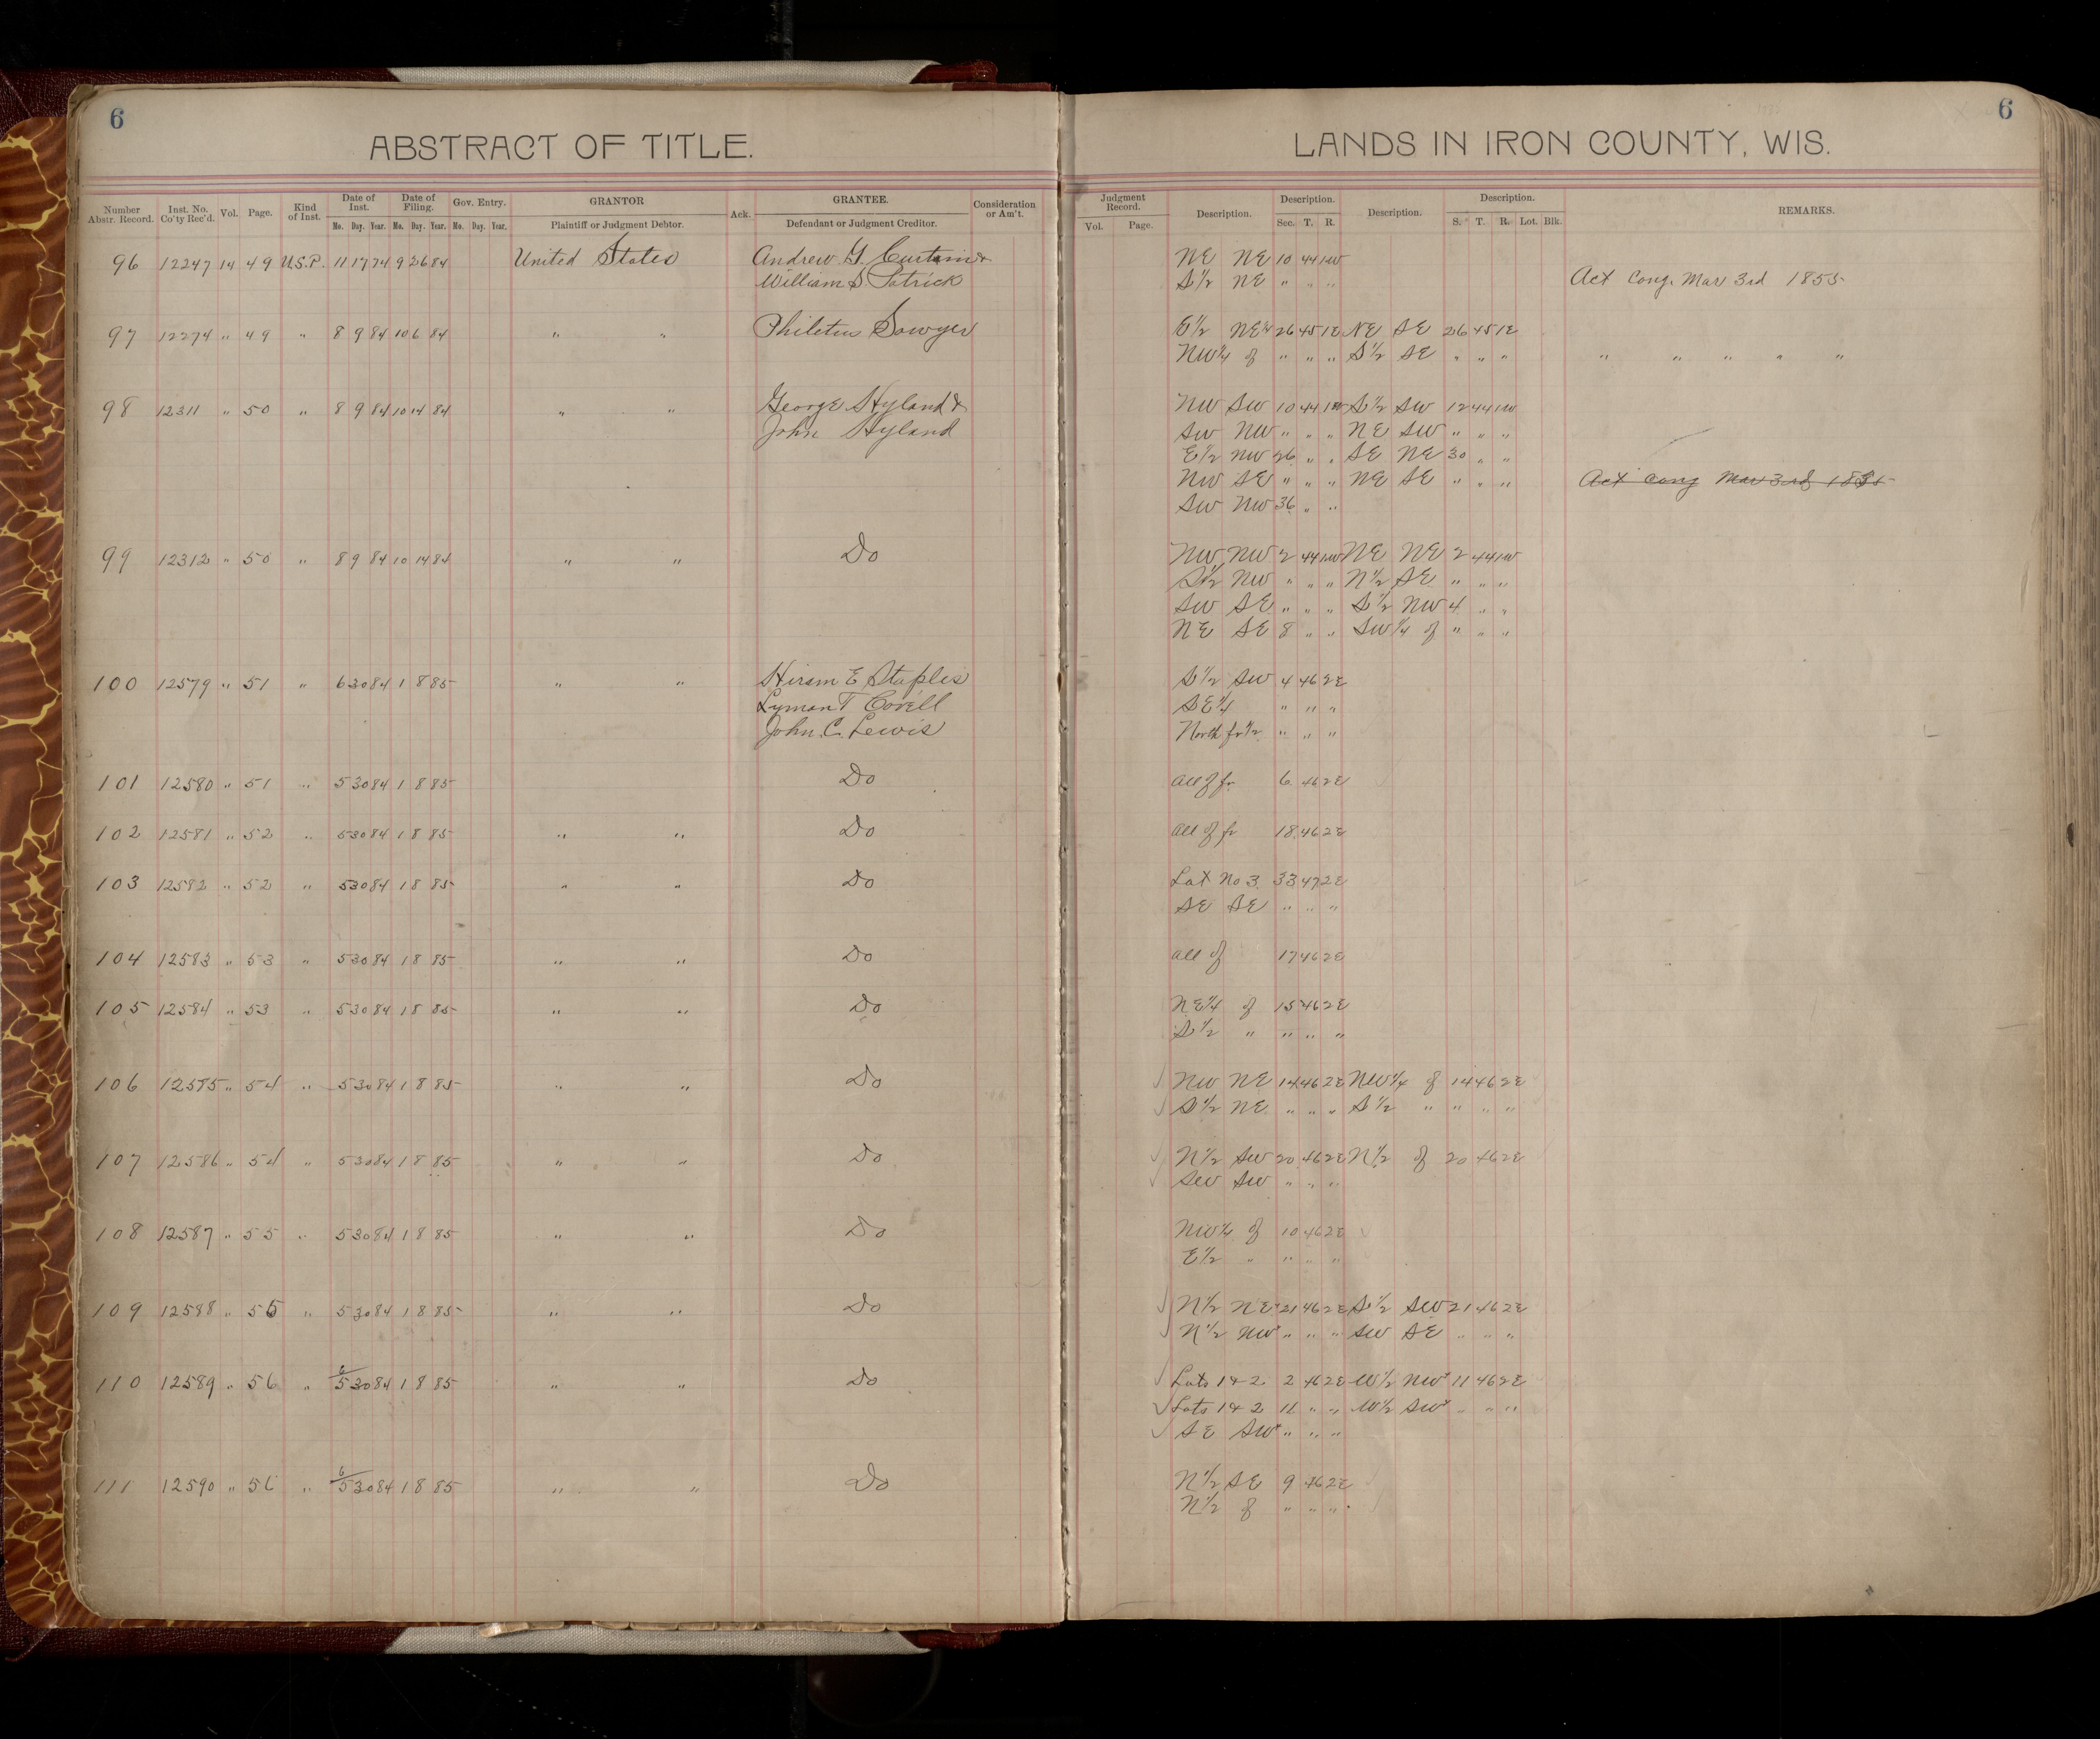 6
ABSTRACT OF TITLE.
Number Abstr. Record. Inst. No. Co'ty Rec'd. Vol. Page. Kind of Inst. Date of Inst. Mo. Day. Year. Date of Filing. Mo. Day. Year. Gov. Entry. Mo. Day. Year. GRANTOR Plaintiff or Judgment Debtor. Ack. GRANTEE. Defendant or Judgment Creditor. Consideration or Am't.
96 12247 14 49 U.S.P. 11 17 74 9 26 84 United States Andrew G. Curtin &
William S. Patrick
97 12274 " 49 " 8 9 84 10 6 84 " " Philetus Sawyer
98 12311 " 50 " 8 9 84 10 14 84 " " George Hyland &
John Hyland
99 12312 " 50 " 8 9 84 10 14 84 " " Do
100 12579 " 51 " 6 30 84 1 8 85 " " Hiram E Staples
Lyman T Covell
John C. Lewis
101 12580 " 51 " 5 30 84 1 8 85 Do
102 12581 " 52 " 5 30 84 1 8 85 " " Do
103 12582 " 52 " 5 30 84 1 8 85 " " Do
104 12583 " 53 " 5 30 84 1 8 85 " " Do
105 12584 " 53 " 5 30 84 1 8 85 " " Do
106 12585 " 54 " 5 30 84 1 8 85 " " Do
107 12586 " 54 " 5 30 84 1 8 85 " " Do
108 12587 " 55 " 5 30 84 1 8 85 " " Do
109 12588 " 55 " 5 30 84 1 8 85 " " Do
6
110 12589 " 56 " 5 30 84 1 8 85 " " Do
6
111 12590 " 56 " 5 30 84 1 8 85 " " Do
6
LANDS IN IRON COUNTY, WIS.
Judgment Record. Vol. Page. Description. Description. Sec. T. R. Description. Description. S. T. R. Lot. Blk. REMARKS.
NE NE 10 44 1W
S½ NE " " " Act Cong. Mar 3rd 1855
E½ NE¼ 26 45 1E NE SE 26 45 1E
NW¼ of " " " S½ SE " " " " " " " "
NW SW 10 44 1W S½ SW 12 44 1W
SW NW " " " NE SW " " "
E½ NW 26 " " SE NE 30 " "
NW SE " " " NE SE " " " Act Cong Mar 3rd 1855
SW NW 36 " "
NW NW 2 44 1W NE NE 2 44 1W
S½ NW " " " N½ SE " " "
SW SE " " " S½ NW 4 " "
NE SE 8 " " SW¼ of " " "
S½ SW 4 46 2E
SE¼ " " "
North fr ½ " " "
All of fr 6 46 2E
All of fr 18 46 2E
Lot No 3 33 47 2E
SE SE " " "
All of 17 46 2E
NE¼ of 15 46 2E
S½ " " " "
NW NE 14 46 2E NW¼ of 14 46 2E
S½ NE " " " S½ " " " "
N½ SW 20 46 2E N½ of 20 46 2E
SW SW " " "
NW¼ of 10 46 2E
E½ " " " "
N½ NE 21 46 2E S½ SW 21 46 2E
N½ NW " " " SW SE " " "
Lots 1 & 2 2 46 2E W½ NW 11 46 2E
Lots 1 & 2 11 " " W½ SW " " "
SE SW " " "
N½ SE 9 46 2E
N½ of " " "